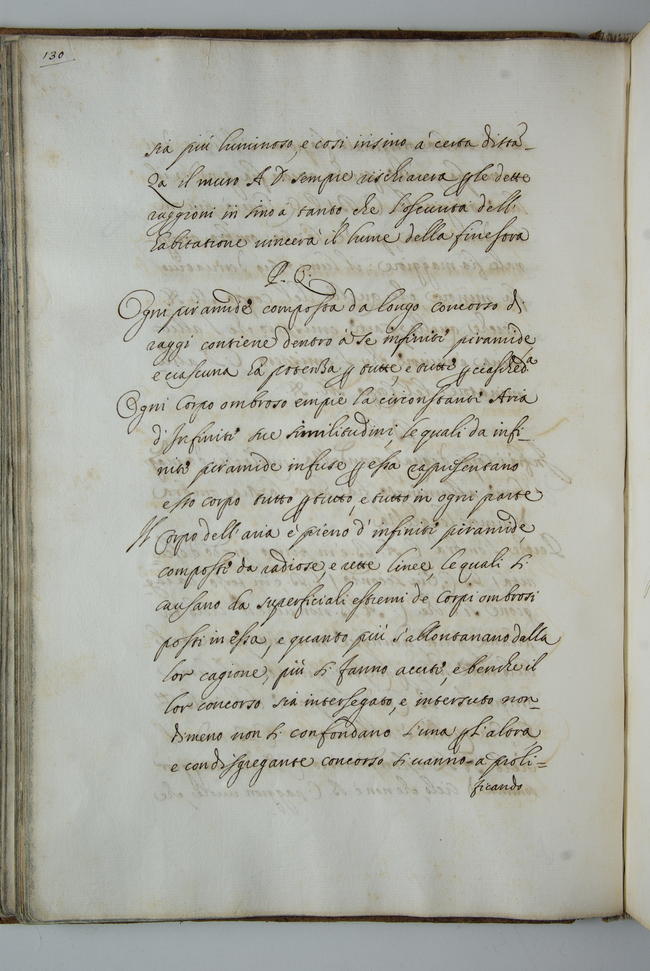 130
sia più luminoso, e così insino à certa distā-
Za il muro A D. sempre rischiarera ꝑ le dette
raggioni in sino a tanto che l'oscurità dell'
habitatione vincera' il lume della finestra
Ogni piramide composta da longo concorso di
raggi contiene dentro à se infiniti piramide
e ciascuna ha potenza ꝑ tutte, e tutti ꝑ ciascheda
Ogni Corpo ombroso empie la circonstanti Aria
d'Infiniti sue similitudini, le quali da infi-
niti piramide infuse ꝑ essa rapresentano
esso corpo tutto ꝑ tutto, e tutto in ogni parte
Il Corpo dell'aria è pieno d'infiniti piramide,
composti da radiose, e rette linee, le quali si
causano da superficiali estremi de Corpi ombrosi
posti in essa, e quanto più s'allontanano dalla
lor cagione, più si fanno accuti, e benche il
lor concorso sia intersegato, e intersuto non-
dimeno non si confondano l'una ꝑ l'altra,
e con disgregante concorso si vanno a proli=
ficando